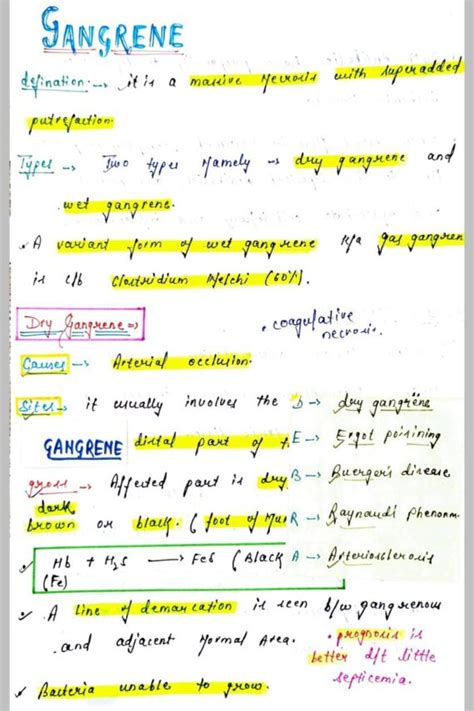 GANGRENE
defination → it is a massive Necrosis with superadded
putrefaction.
Types → Two types Namely → dry gangrene and
wet gangrene.
A variant form of wet gangrene k/a gas gangren
is c/b Clostridium Welchi (60%).
Dry Gangrene ⇒
• coagulative
necrosis.
Causes → Arterial occlusion.
Sites → it usually involves the
D → dry gangrene
GANGRENE distal part of
E → Ergot poisining
gross → Affected part is dry
B → Buerger's disease
dark
brown or black. (foot of Mu
R → Raynaud's Phenonm.
Hb + H2S → FeS (Black
(Fe)
A → Arteriosclerosis
✓ A line of demarcation is seen b/w gangrenous
and adjacent Normal Area.
• prognosis is
better d/t little
septicemia.
✓ Bacteria unable to grow.